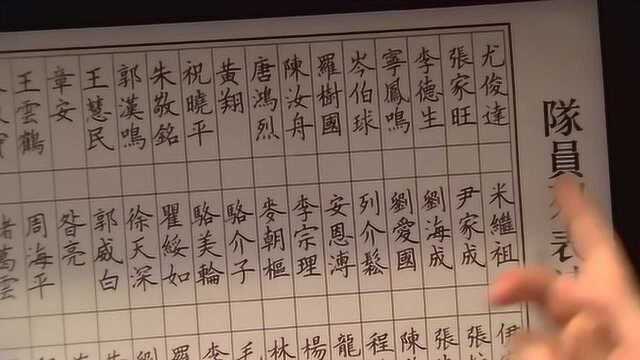 隊員
表
尤俊達
張家旺
李德生
寧鳳鳴
岑伯球
羅樹國
陳汝舟
唐鴻烈
黃翔
祝曉平
朱敬銘
郭漢鳴
王慧民
章安
王雲鶴
米繼祖
尹家成
劉海成
劉愛國
列介鬆
安恩溥
李宗理
麥朝樞
駱介子
駱美輪
瞿綏如
徐天深
郭威白
昝亮
周海平
萬雲
伊
張
張
陳
程
龍
楊
林
毛
李
羅
劉